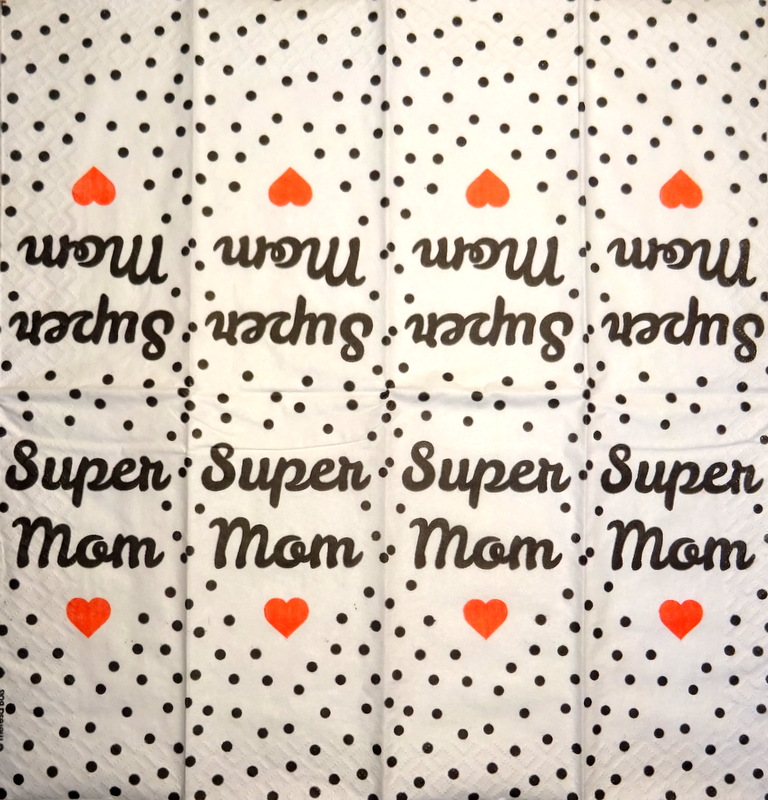 Mom Mom Mom Mom
Super Super Super Super
Super Super Super Super
Mom Mom Mom Mom